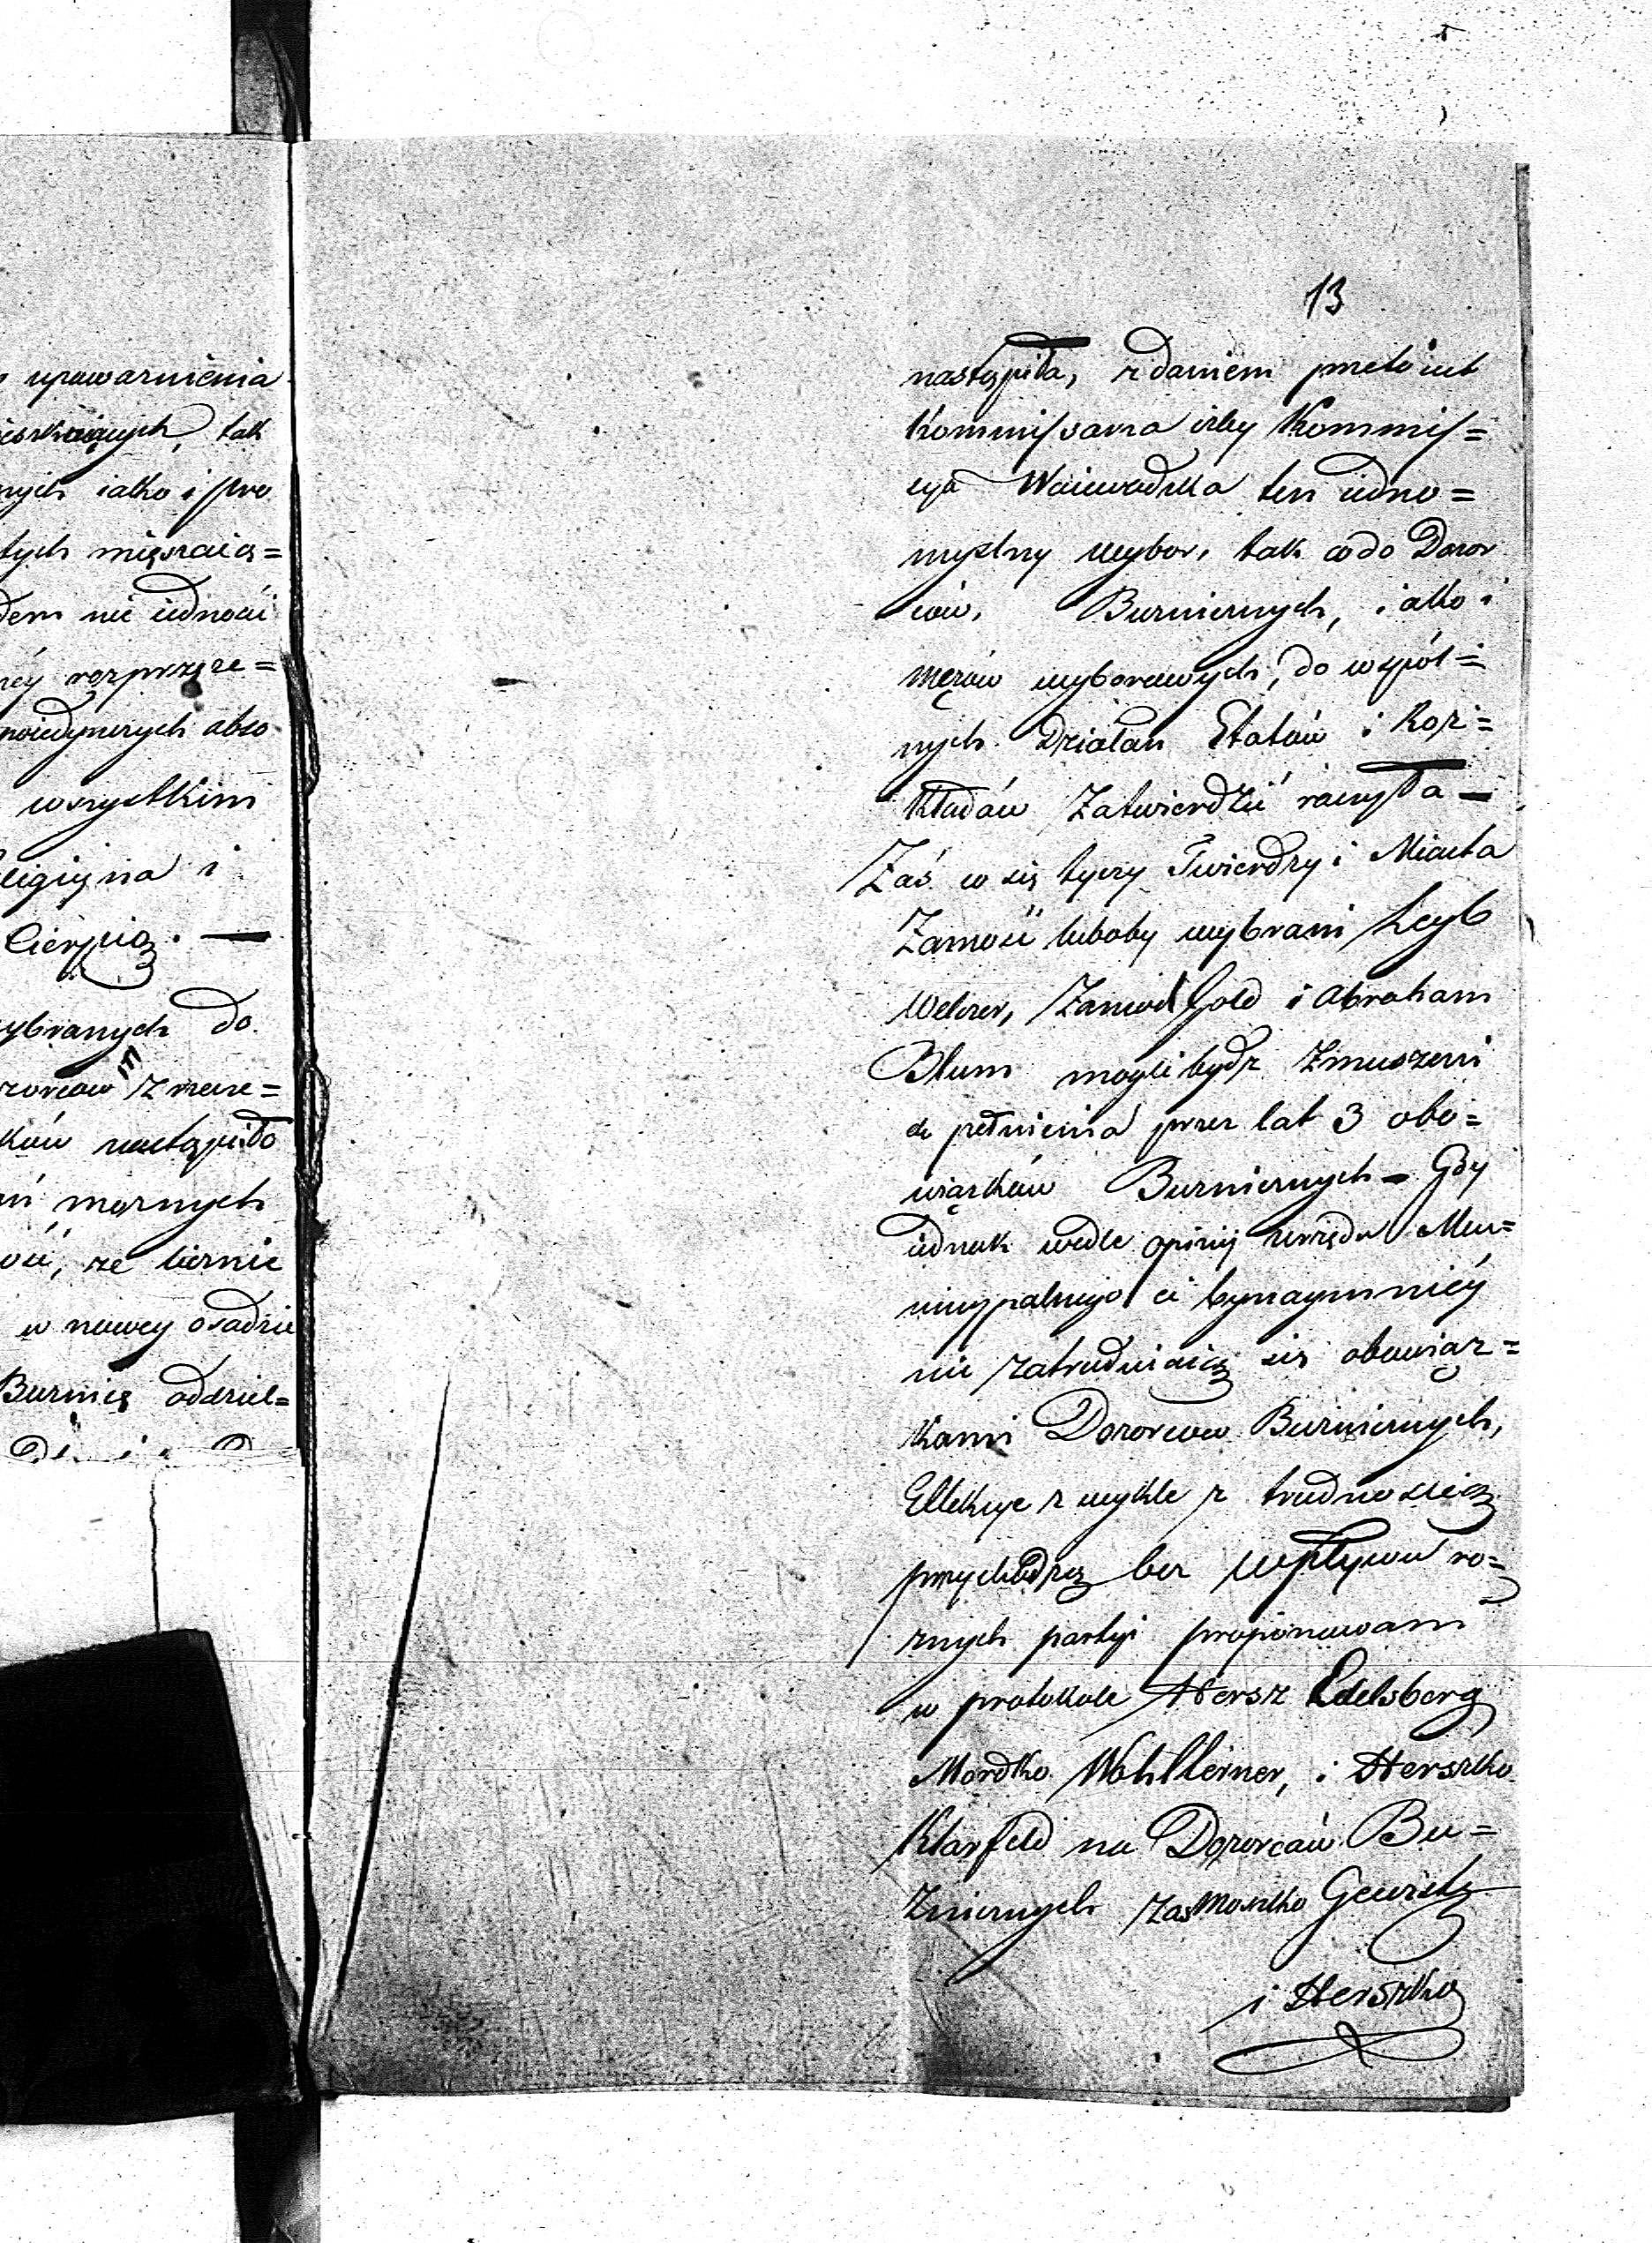 upoważnienia
tak
nych iako i pro
tych mięszcaią=
dem nie iedności
rozprzęże=
poiedynczych abso
wszystkim
religiyna i
Cierpią. —
wybranych do
zorców III Znacze=
ków nastąpiło
możnych
ość, że liernie
w nowey osadzie
Bużnią oddziel=
13
nastąpiła, zdaniem przeto iest
Kommissarza iżby Kommis=
cya Woiewódzka ten iedno=
myślny wybor, tak co do Dozor
ców, Bużnicznych, iako i
mężów wyborowych, do wspól=
nych Działań Etatów i Roz=
kładów Zatwierdzić raczyła —
Zaś co się tyczy Twierdzy i Miasta
Zamość luboby wybrani Leyb
Welczer, Zamwel Gold i Abraham
Blum mogli bydź Zmuszeni
do pełnienia przez lat 3 obo=
wiązków Bużnicznych — Gdy
iednak wedle opinij urzędu Mu=
nicypalnego ci bynaymniey
nie zatrudniaią się obowiąz=
kami Dozorców Bużnicznych,
Ellekcye zwykle z trudnością
przychodzą bez wpływu ro=
znych partyi proponowani
w protokole Hersz Edelsberg
Mordko Wohllerner, i Herszko
Klarfeld na Dozorców Bu=
Znicznych zaś Moszko Gewirtz
i Herszko